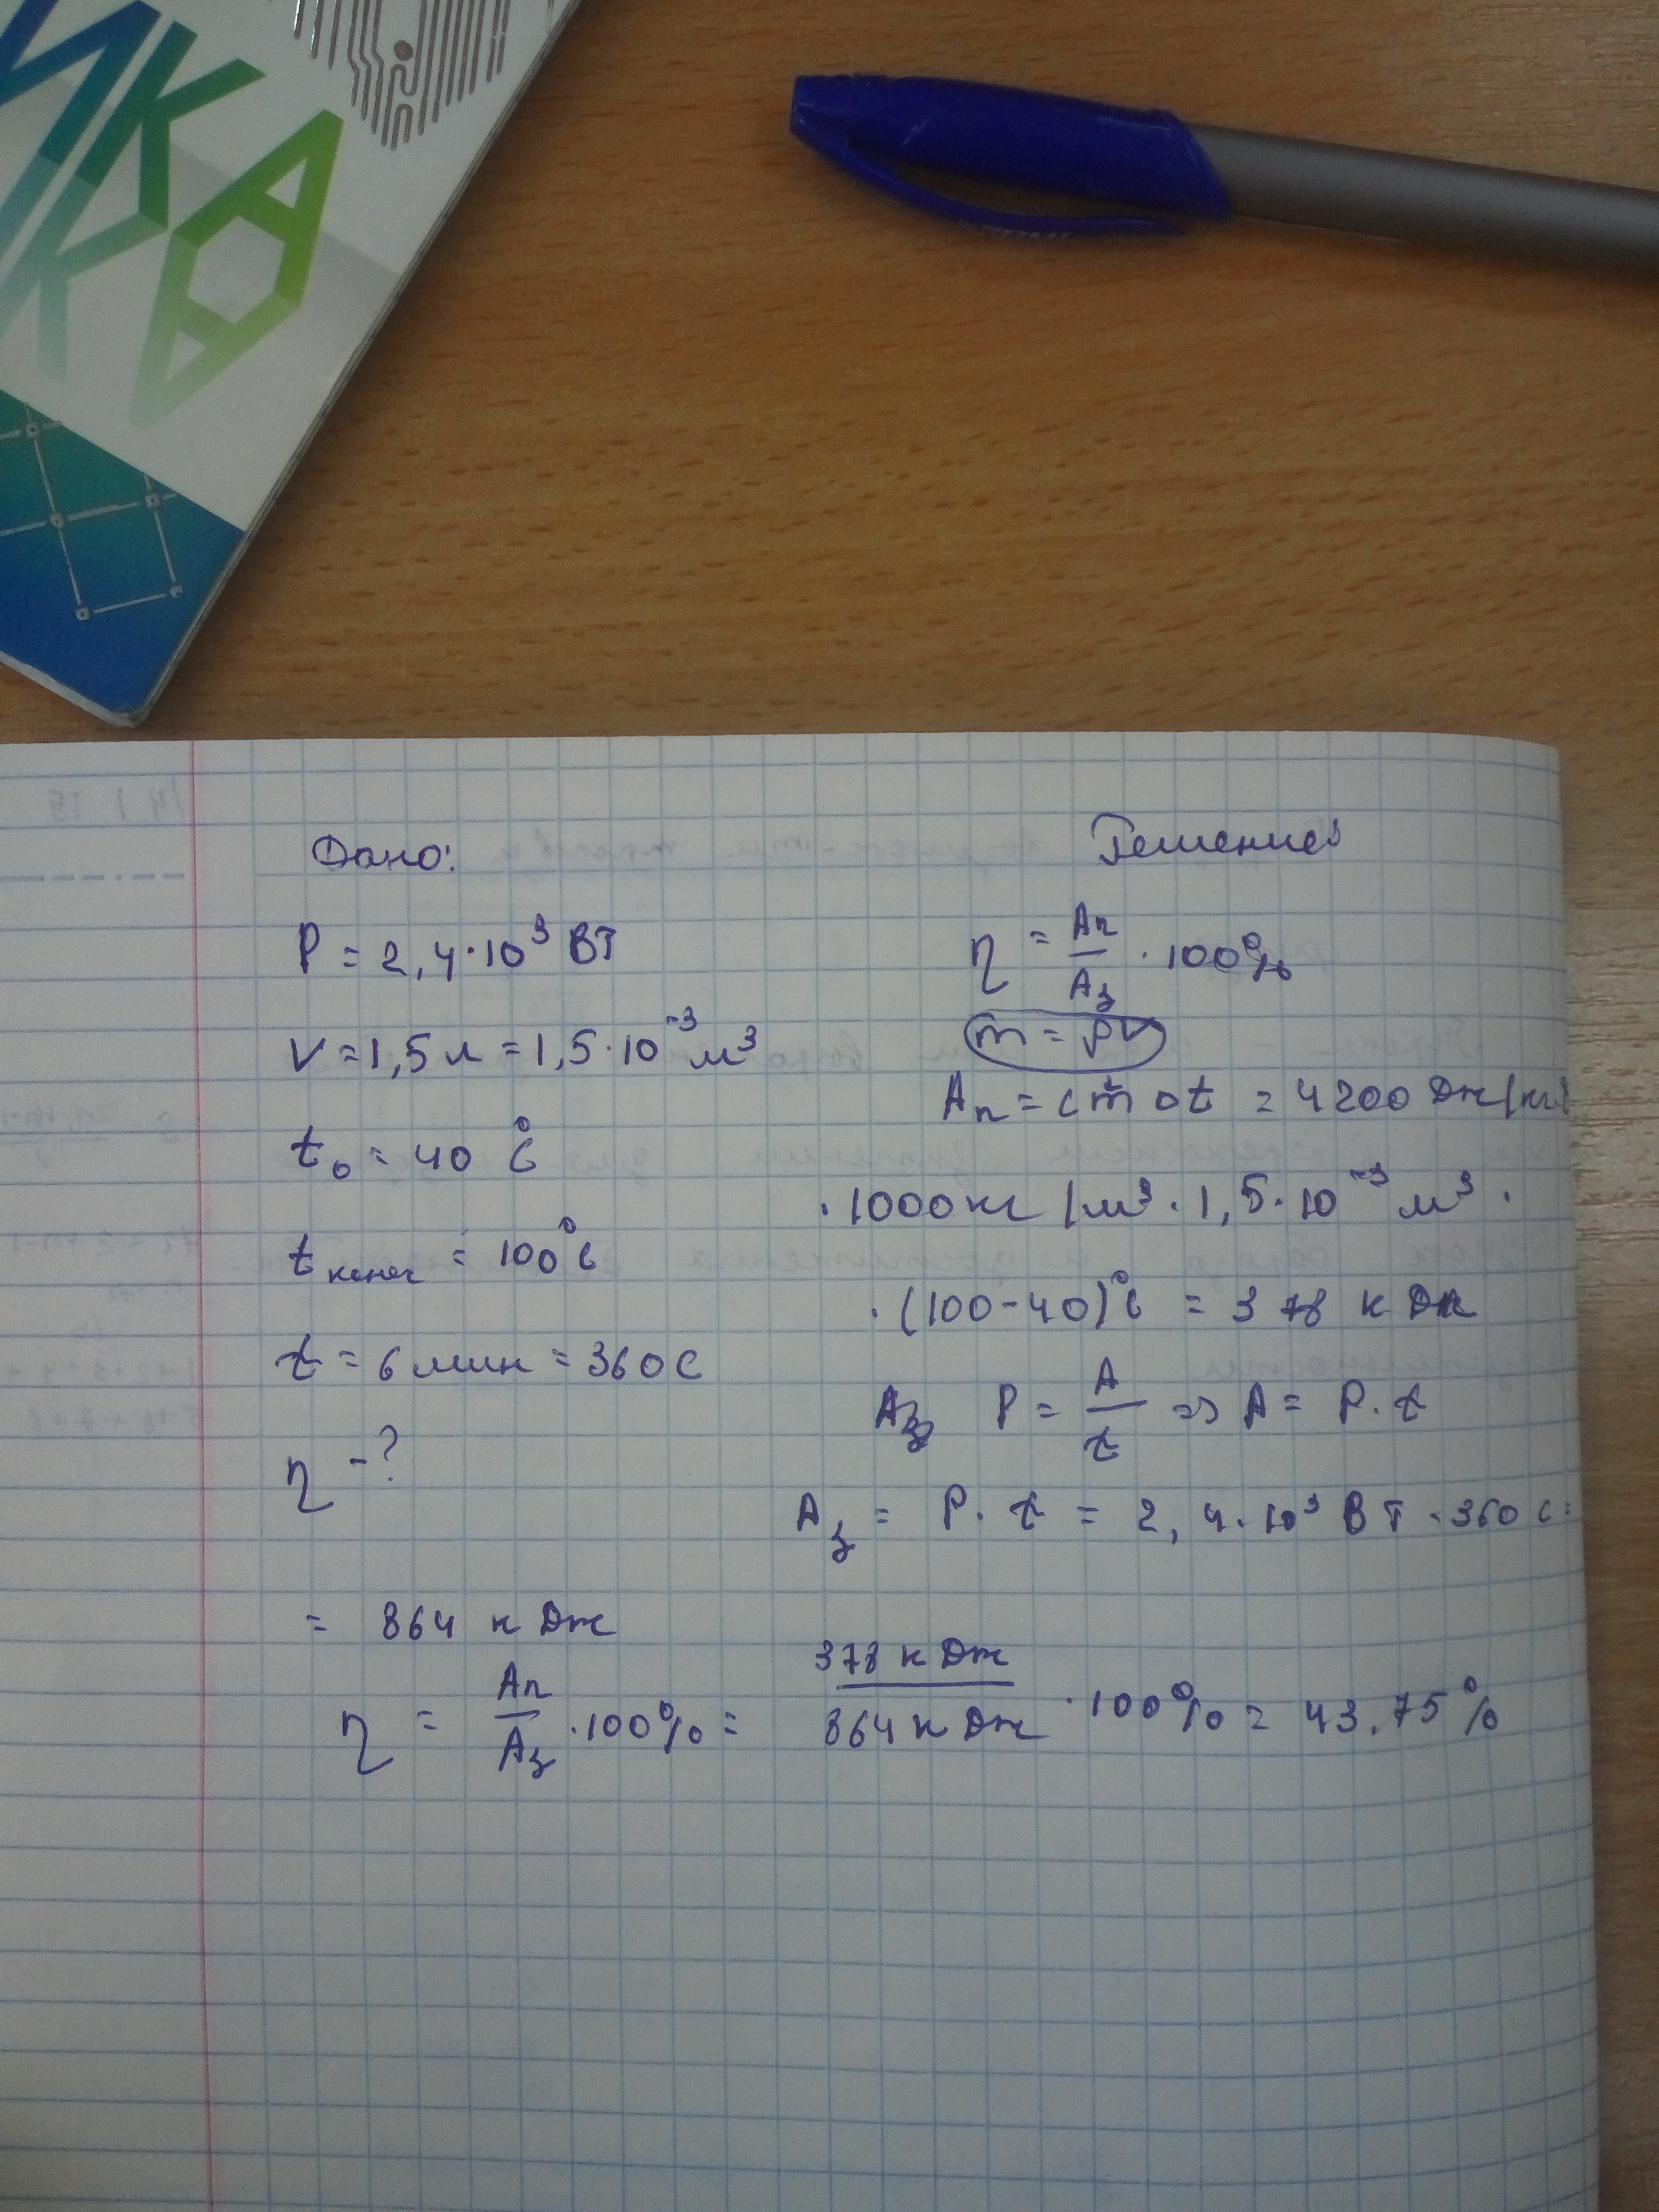 ИКА
Дано:
P = 2,4·10³ Вт
V = 1,5 л = 1,5·10⁻³ м³
t₀ = 40 °C
t конеч = 100 °C
t = 6 мин = 360 с
η - ?
Решение:
η = Aп/Aз · 100%
m = ρV
Aп = cmΔt = 4200 Дж/кг
· 1000 кг/м³ · 1,5·10⁻³ м³ ·
· (100-40) °C = 378 кДж
Aз P = A/t => A = P·t
Aз = P·t = 2,4·10³ Вт · 360 с =
= 864 кДж
η = Aп/Aз · 100% = 378 кДж/864 кДж · 100% = 43,75%